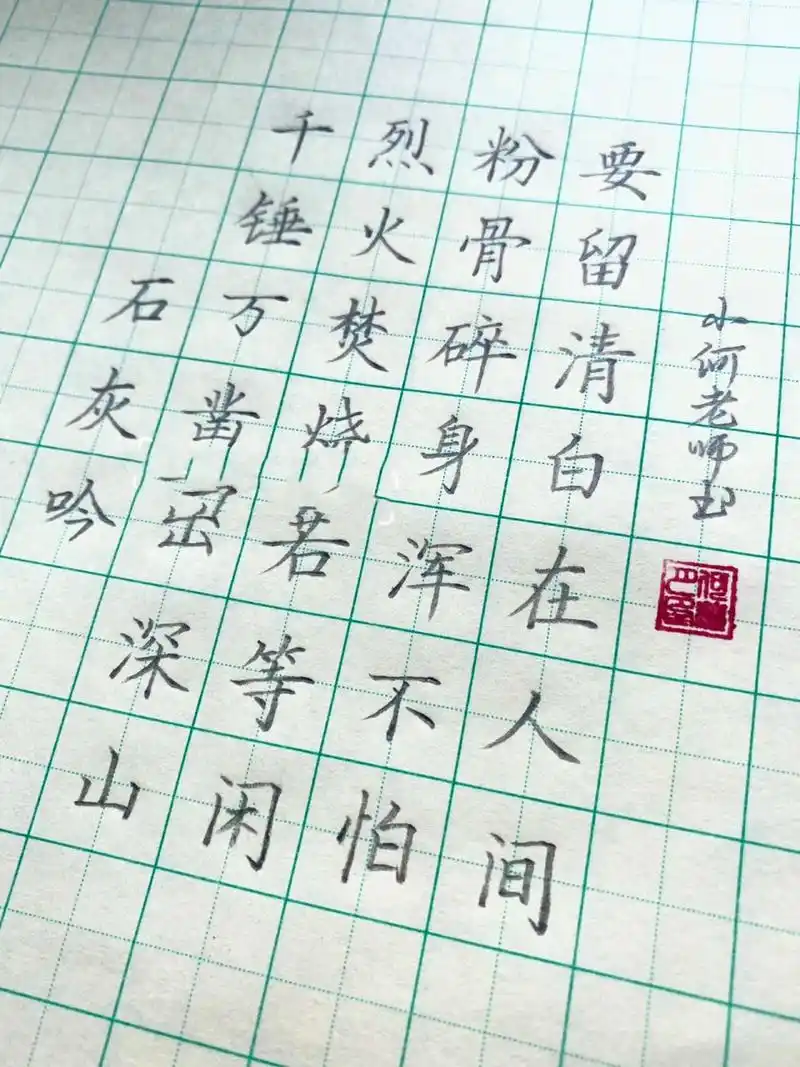 石灰吟
千锤万凿深山
烈火焚烧若等闲
粉骨碎身浑不怕
要留清白在人间
小何老师书